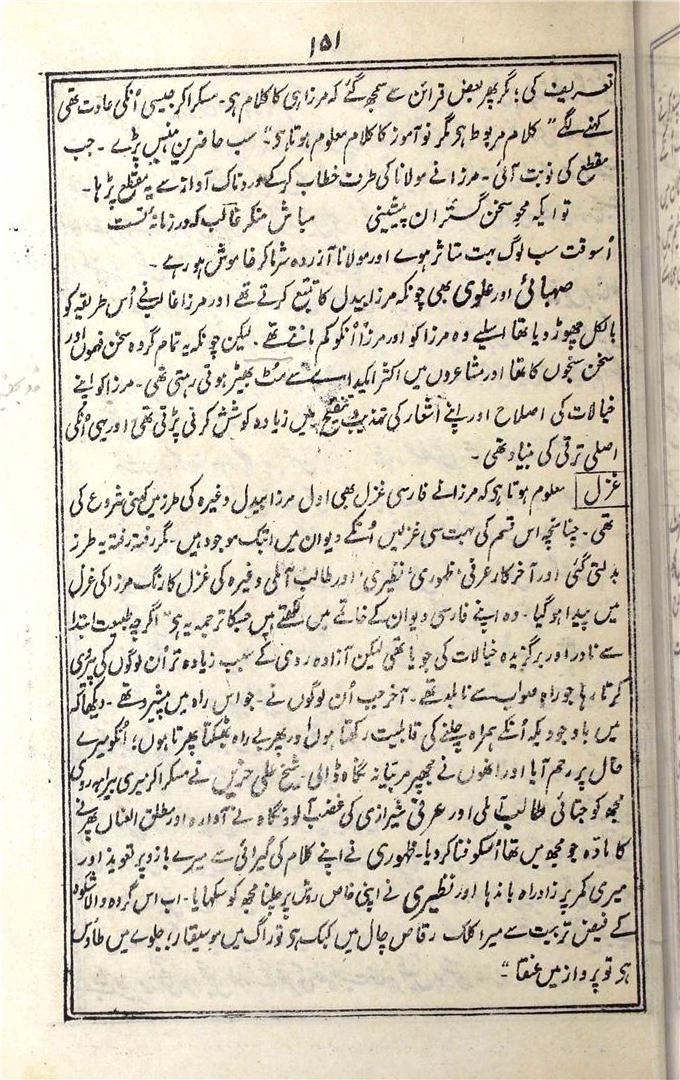 ۱۵۱
تعریف کی؛ مگر پھر بعض قرائن سے سمجھ گئے کہ مرزا ہی کا کلام ہو۔ مسکرا کر جیسی اُنکی عادت تھی
کہنے لگے "کلام مربوط ہو مگر نو آموز کا کلام معلوم ہوتا ہو"۔ سب حاضرین ہنس پڑے۔ جب
مقطع کی نوبت آئی۔ مرزا نے مولانا کی طرف خطاب کرکے دردناک آواز سے یہ مقطع پڑھا۔
تو ایکہ محوِ سخن گسترانِ پیشینی مباش منکرِ غالب کہ در زمانۂ تست
اُسوقت سب لوگ بہت متاثر ہوے اور مولانا آزردہ شرما کر خاموش ہو رہے۔
صہبائی اور علوی بھی چونکہ مرزا بیدل کا تتبع کرتے تھے اور مرزا غالب نے اُس طریقہ کو
بالکل چھوڑ دیا تھا اسلیے وہ مرزا کو اور مرزا اُنکو کم مانتے تھے۔ لیکن چونکہ یہ تمام گروہ سخن فہموں اور
سخن سنجوں کا تھا اور مشاعروں میں اکثر ایک دوسرے سے مٹ بھیڑ ہوتی رہتی تھی۔ مرزا کو اپنے
خیالات کی اصلاح اور اپنے اشعار کی تہذیب و تنقیح میں زیادہ کوشش کرنی پڑتی تھی اور یہی اُنکی
اصلی ترقی کی بنیاد تھی۔
غزل معلوم ہوتا ہو کہ مرزا نے فارسی غزل بھی اول مرزا بیدل وغیرہ کی طرز میں کہنی شروع کی
تھی۔ چنانچہ اس قسم کی بہت سی غزلیں اُنکے دیوان میں ابتک موجود ہیں۔ مگر رفتہ رفتہ یہ طرز
بدلتی گئی اور آخر کار عرفی، ظہوری، نظیری، اور طالب آملی وغیرہ کی غزل کا رنگ مرزا کی غزل
میں پیدا ہو گیا۔ وہ اپنے فارسی دیوان کے خاتمے میں لکھتے ہیں جسکا ترجمہ یہ ہو "اگرچہ طبیعت ابتدا
سے نادر اور برگزیدہ خیالات کی جویا تھی لیکن آزادہ روی کے سبب زیادہ تر اُن لوگوں کی پیروی
کرتا رہا جو راہِ صواب سے نابلد تھے۔ آخر جب اُن لوگوں نے۔ جو اس راہ میں پیشرو تھے۔ دیکھا کہ
میں باوجودیکہ اُنکے ہمراہ چلنے کی قابلیت رکھتا ہوں اور پھر بے راہ بھٹکتا پھرتا ہوں؛ اُنکو میرے
حال پر رحم آیا اور اُنھوں نے مجھپر مربیانہ نگاہ ڈالی۔ شیخ علی حزیں نے مسکرا کر میری بیراہہ روی
مجھ کو جتائی طالب آملی اور عرفی شیرازی کی غضب آلود نگاہ نے آوارہ اور مطلق العنان پھرنے
کا مادّہ جو مجھ میں تھا اُسکو فنا کر دیا۔ ظہوری نے اپنے کلام کی گیرائی سے میرے بازو پر تعویذ اور
میری کمر پر زادِ راہ باندھا اور نظیری نے اپنی خاص روش پر چلنا مجھ کو سکھایا۔ اب اس گروہ والا شکوہ
کے فیضِ تربیت سے میرا کلکِ رقاص چال میں کبک ہو تو راگ میں موسیقار؛ جلوے میں طاؤس
ہو تو پرواز میں عنقا"۔